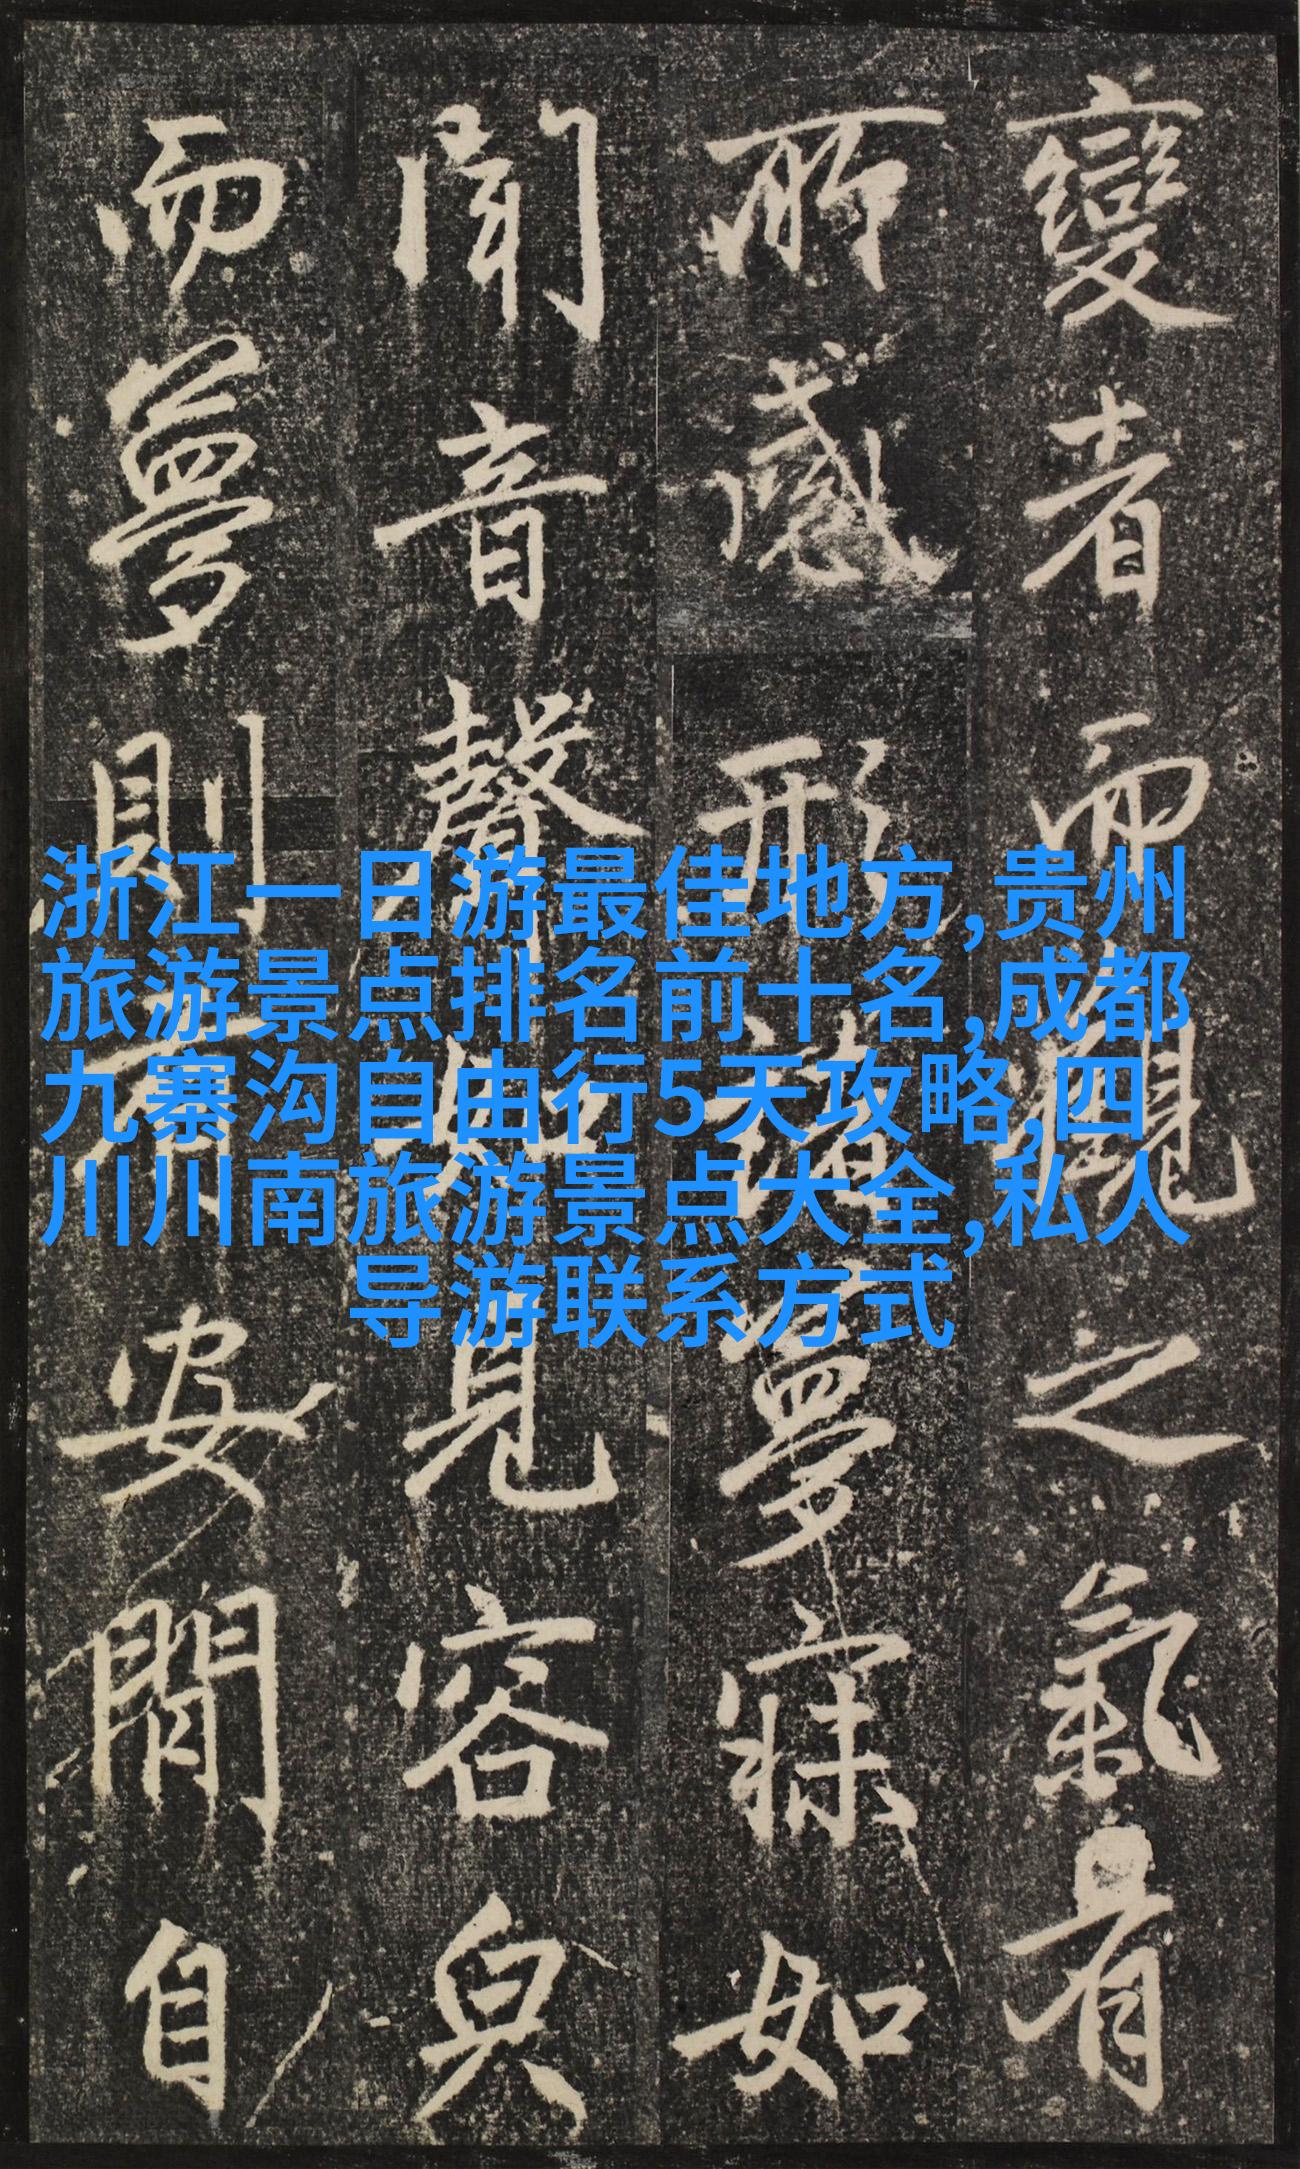 變者而觀之氣有
所感形諸夢寐如
聞音聲如見容皃
而夢則有安閒自
浙江一日游最佳地方,贵州
旅游景点排名前十名,成都
九寨沟自由行5天攻略,四
川川南旅游景点大全,私人
导游联系方式